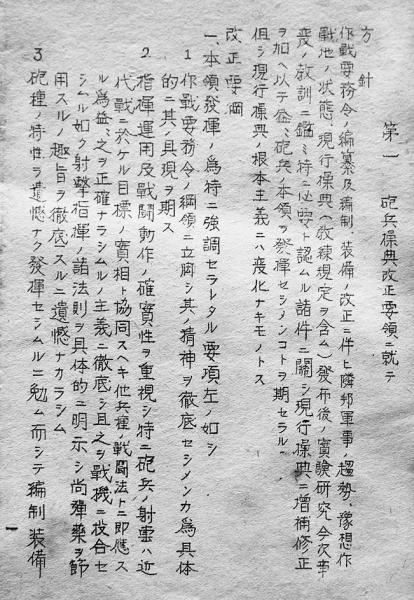 第一　砲兵操典改正要領ニ就テ
方針
作戰要務令ノ編纂及編制、裝備ノ改正ニ伴ヒ隣邦軍事ノ趨勢、豫想作
戰地ノ狀態、現行操典(敎練規定ヲ含ム)發布後ノ實驗硏究、今次事
變ノ敎訓ニ鑑ミ特ニ必要ト認ムル諸件ニ關シ現行操典ニ增補修正
ヲ加ヘ以テ益〻砲兵ノ本領ヲ發揮セシメンコトヲ期セラル
但シ現行操典ノ根本主義ニハ變化ナキモノトス
改正要綱
一、本領發揮ノ爲特ニ強調セラレタル要項左ノ如シ
1 作戰要務令ノ綱領ニ立脚シ其ノ精神ヲ徹底セシメンカ爲具体
的ニ其ノ具現ヲ期ス
2 指揮運用及戰鬪動作ノ確實性ヲ重視シ特ニ砲兵ノ射擊ハ近
代戰ニ於ケル目標ノ實相ト協同スヘキ他兵種ノ戰鬪法トニ即應ス
ル爲益〻之ヲ正確ナラシムルノ主義ニ徹底シ且之ヲ戰機ニ投合セ
シムル如ク射擊指揮ノ諸法則ヲ具体的ニ明示シ尚彈藥ヲ節
用スルノ趣旨ヲ徹底スルニ遺憾ナカラシム
3 砲種ノ特性ヲ遺憾ナク發揮セシムルニ勉ム而シテ編制裝備
一